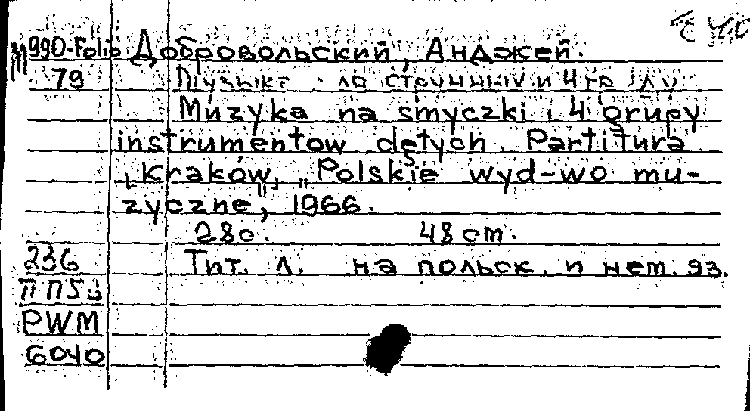 990-Folio Добровольский, Анджей.
79
Muzyka na smyczki i 4 grupy
instrumentow dętych. Partitura
Kraków, "Polskie wyd-wo mu-
zyczne", 1966.
28с. 48 cm.
236 Тит. л. на польск. и нем. яз.
PWM
6040